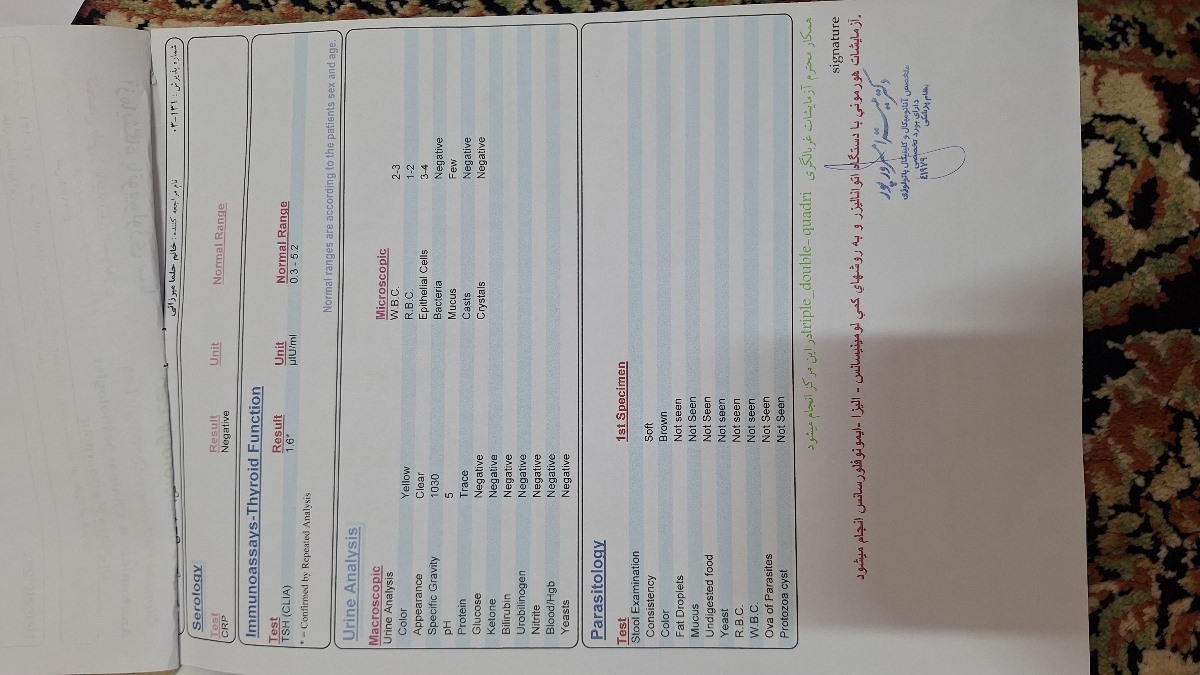 شماره پذیرش : ۱۳۱-۰۳ نام مراجعه کننده : خانم حلما میرزائی
Serology
Test Result Unit Normal Range
CRP Negative
Immunoassays-Thyroid Function
Test Result Unit Normal Range
TSH (CLIA) 1.6* µIU/ml 0.3 - 5.2
* = Confirmed by Repeated Analysis
Normal ranges are according to the patients sex and age.
Urine Analysis
Macroscopic Microscopic
Urine Analysis W.B.C. 2-3
Color Yellow R.B.C. 1-2
Appearance Clear Epithelial Cells 3-4
Specific Gravity 1030 Bacteria Negative
pH 5 Mucus Few
Protein Trace Casts Negative
Glucose Negative Crystals Negative
Ketone Negative
Bilirubin Negative
Urobilinogen Negative
Nitrite Negative
Blood/Hgb Negative
Yeasts Negative
Parasitology
Test 1st Specimen
Stool Examination
Consistency Soft
Color Brown
Fat Droplets Not seen
Mucus Not Seen
Undigested food Not Seen
Yeast Not seen
R.B.C. Not seen
W.B.C. Not seen
Ova of Parasites Not Seen
Protozoa cyst Not Seen
همکار محترم آزمایشات غربالگری triple_double- quadri در این مرکز انجام میشود
signature
آزمایشات هورمونی با دستگاه اتوانالیزر و به روشهای کمی لومینیسانس - الیزا -ایمونوفلورسانس انجام میشود.
متخصص آناتومیکال و کلینیکال پاتولوژی
دارای بورد تخصصی
نظام پزشکی
۴۱۹۷۹